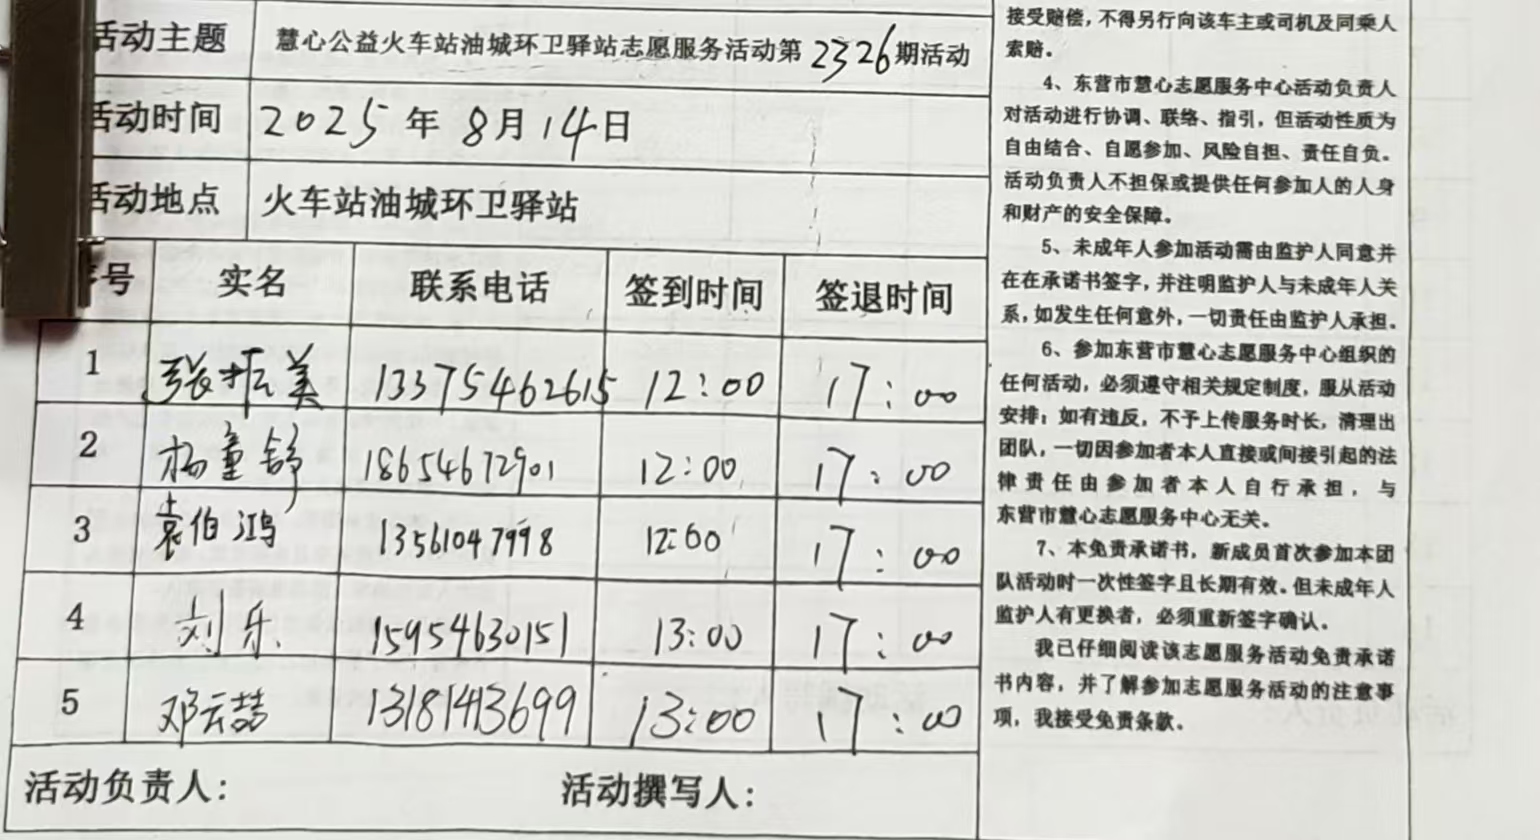 活动主题 慧心公益火车站油城环卫驿站志愿服务活动第2326期活动
活动时间 2025年8月14日
活动地点 火车站油城环卫驿站
序号 实名 联系电话 签到时间 签退时间
1 张振美 13375462615 12:00 17:00
2 杨童舒 18654672901 12:00 17:00
3 袁伯鸿 13561047998 12:00 17:00
4 刘乐 15954630151 13:00 17:00
5 邓云喆 1318143699 13:00 17:00
活动负责人： 活动撰写人：
接受赔偿，不得另行向该车主或司机及同乘人
索赔。
4、东营市慧心志愿服务中心活动负责人
对活动进行协调、联络、指引，但活动性质为
自由结合、自愿参加、风险自担、责任自负。
活动负责人不担保或提供任何参加人的人身
和财产的安全保障。
5、未成年人参加活动需由监护人同意并
在在承诺书签字，并注明监护人与未成年人关
系，如发生任何意外，一切责任由监护人承担。
6、参加东营市慧心志愿服务中心组织的
任何活动，必须遵守相关规定制度，服从活动
安排；如有违反，不予上传服务时长，清理出
团队，一切因参加者本人直接或间接引起的法
律责任由参加者本人自行承担，与
东营市慧心志愿服务中心无关。
7、本免责承诺书，新成员首次参加本团
队活动时一次性签字且长期有效。但未成年人
监护人有更换者，必须重新签字确认。
我已仔细阅读该志愿服务活动免责承诺
书内容，并了解参加志愿服务活动的注意事
项，我接受免责条款。